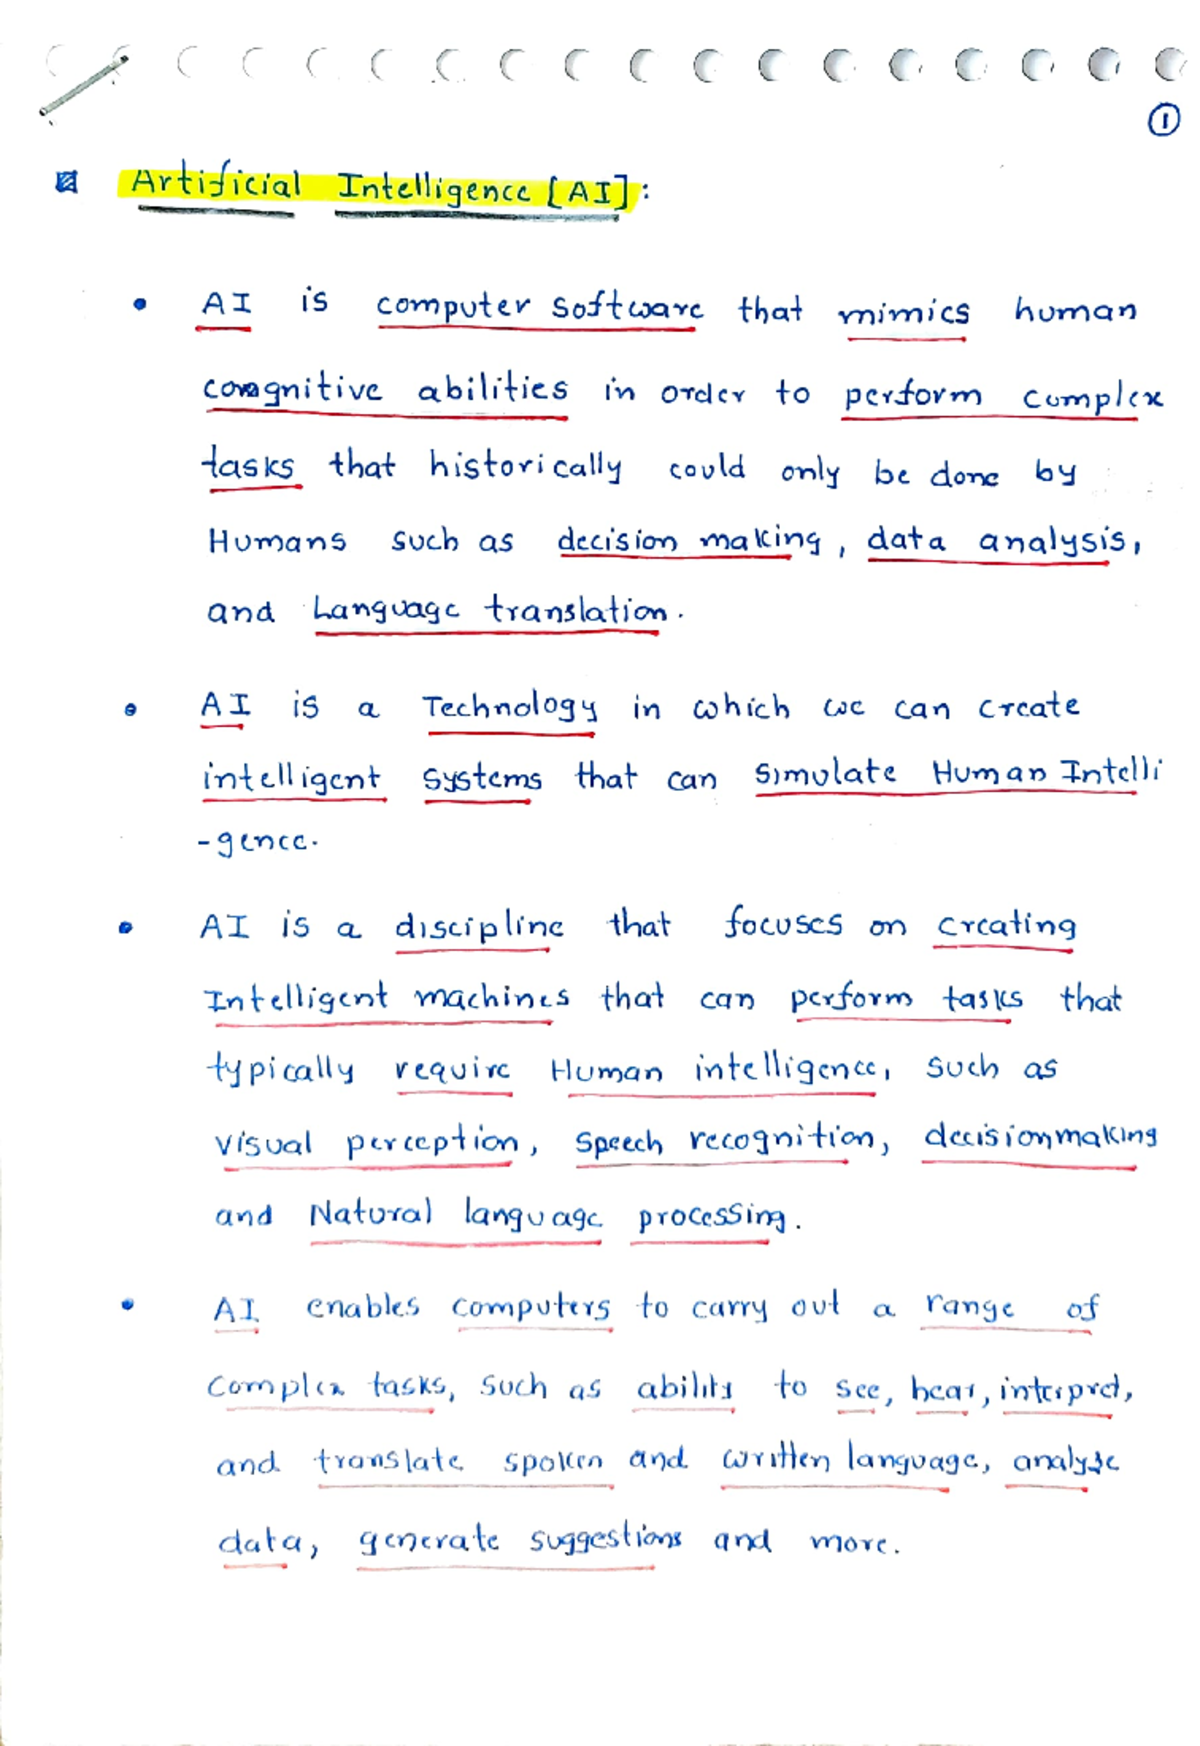 ①
Artificial Intelligence [AI]:
• AI is computer software that mimics human
cognitive abilities in order to perform complex
tasks that historically could only be done by
Humans such as decision making, data analysis,
and Language translation.
• AI is a Technology in which we can create
intelligent systems that can simulate Human Intelli
-gence.
• AI is a discipline that focuses on creating
Intelligent machines that can perform tasks that
typically require Human intelligence, such as
visual perception, speech recognition, decisionmaking
and Natural language processing.
• AI enables computers to carry out a range of
complex tasks, such as ability to see, hear, interpret,
and translate spoken and written language, analyze
data, generate suggestions and more.